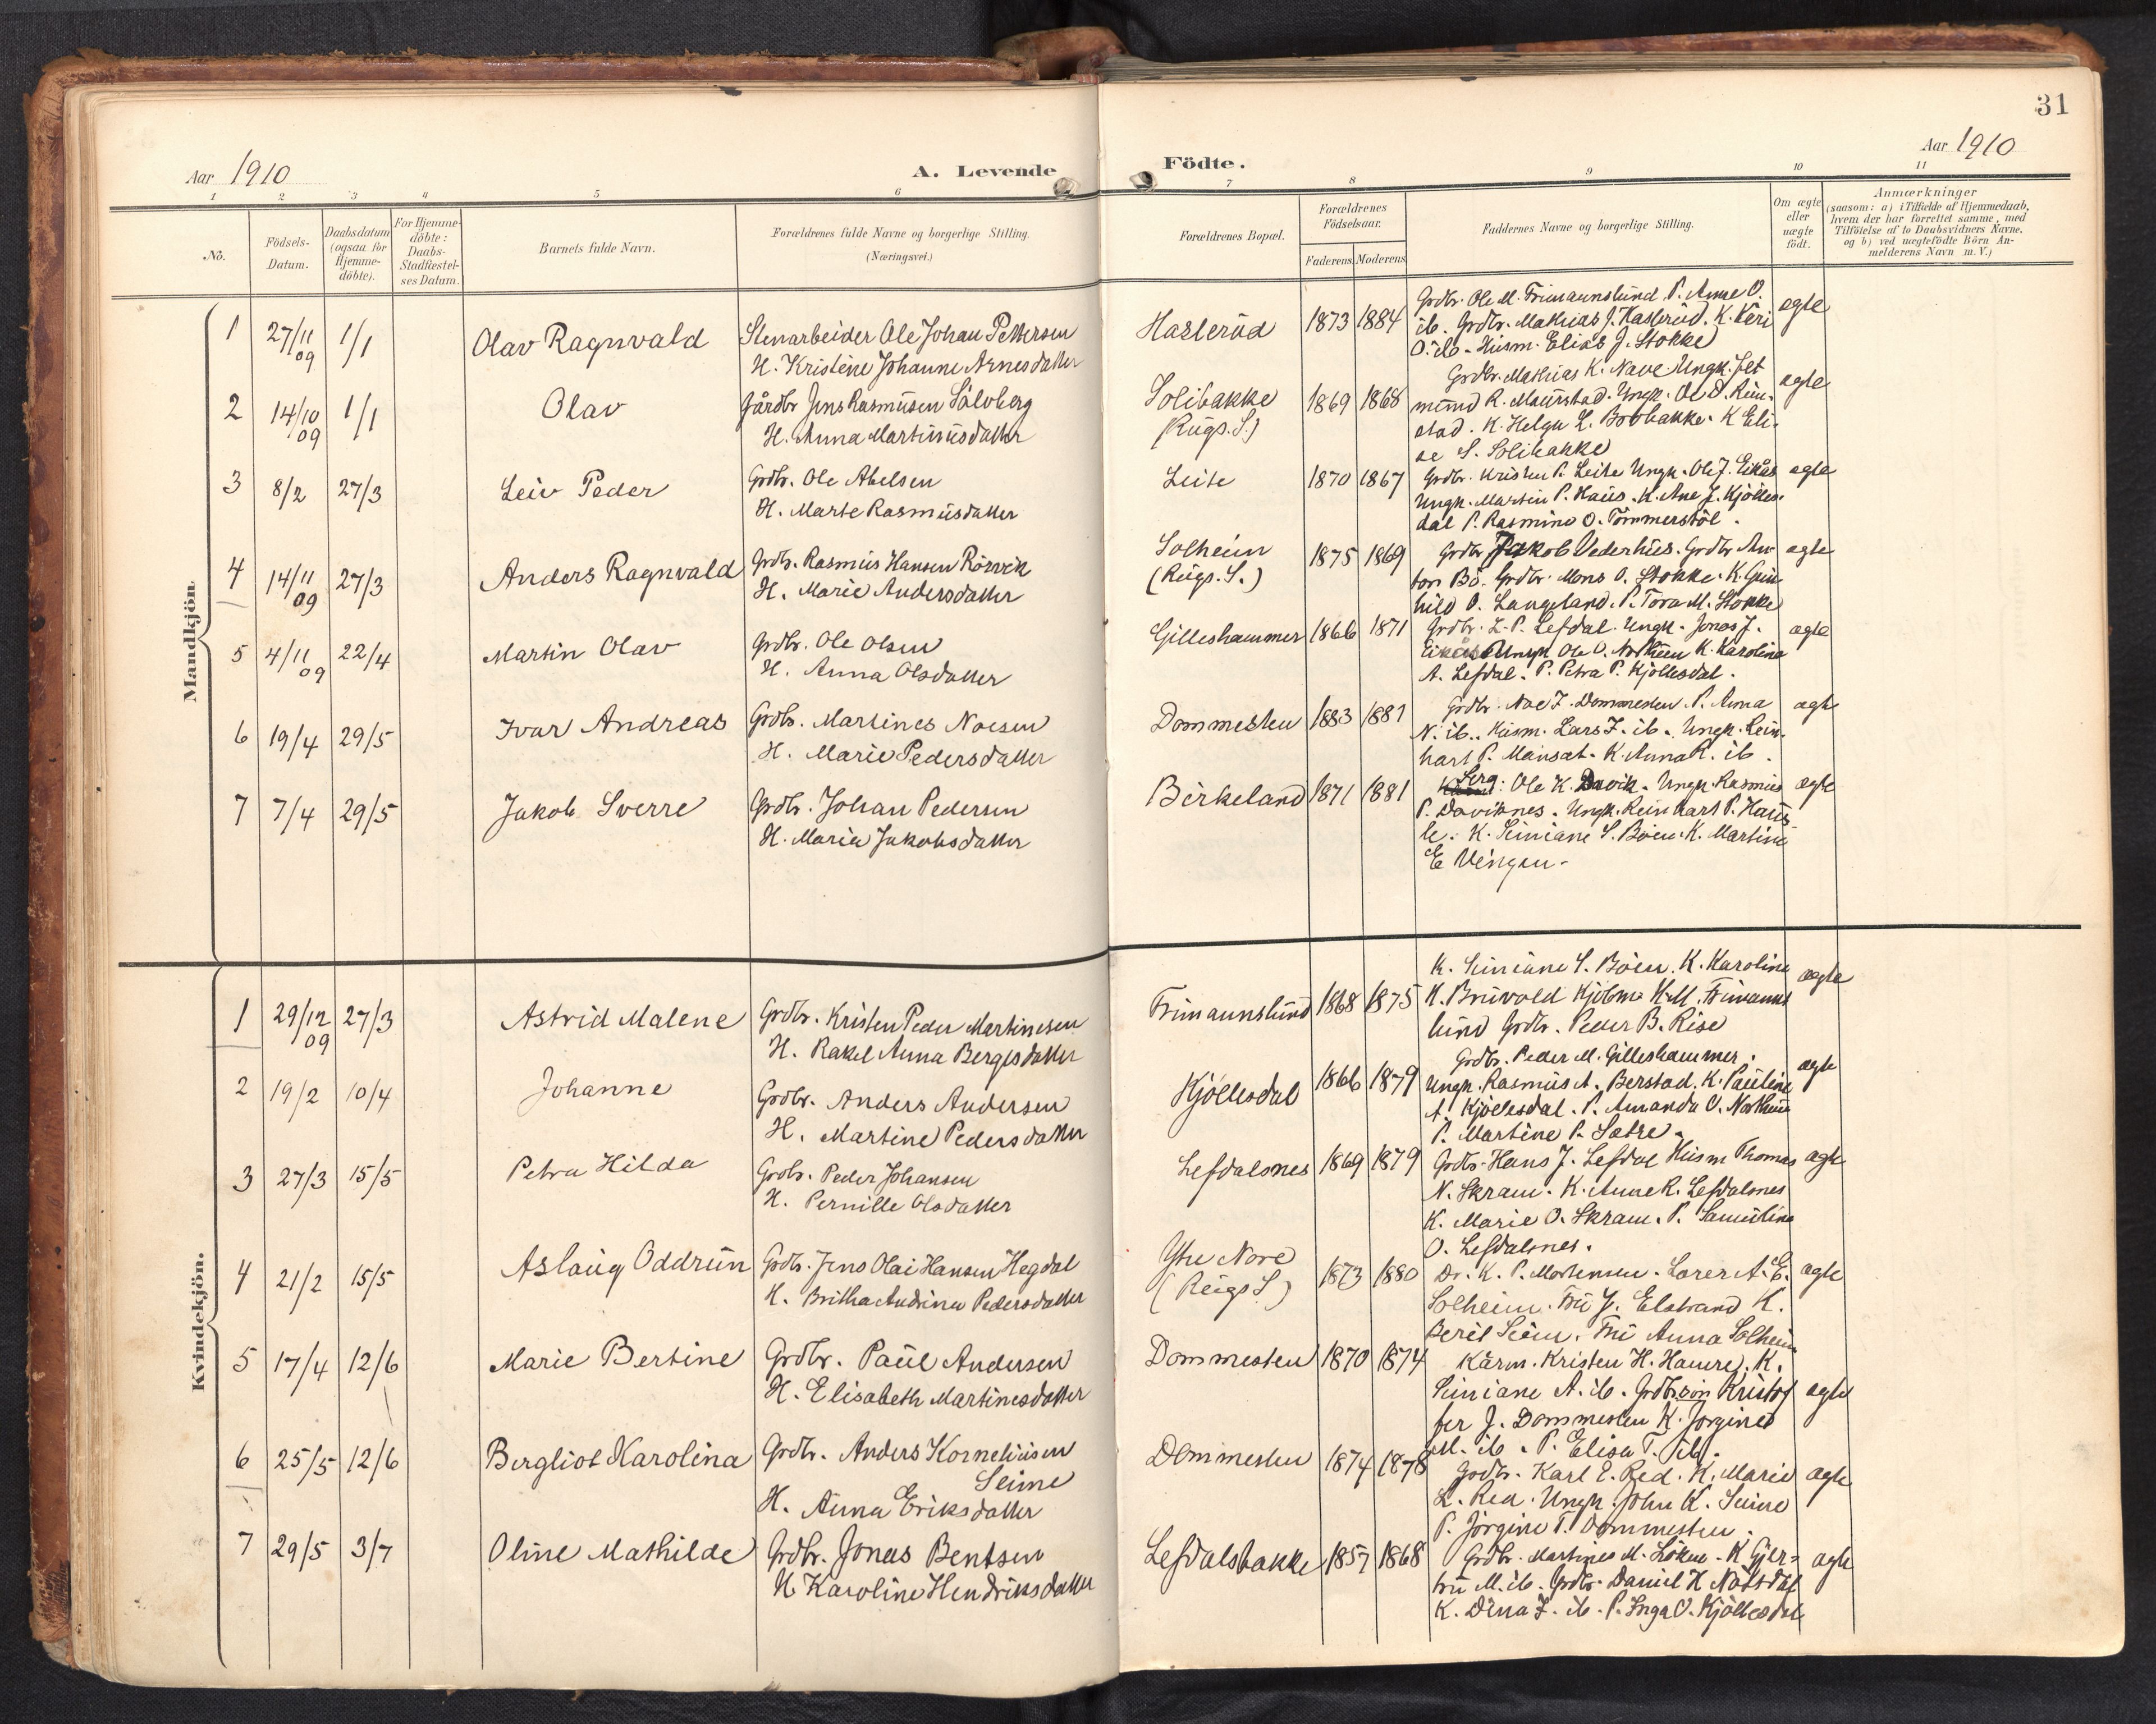 31
Aar 1910
A. Levende
Födte.
Aar 1910
1 2 3 4 5 6 7 8 9 10 11
No.
Födsels-
Datum.
Daabsdatum
(ogsaa for
Hjemme-
döbte).
For Hjemme-
döbte:
Daabs-
Stadfæstel-
ses Datum.
Barnets fulde Navn.
Forældrenes fulde Navne og borgerlige Stilling.
(Næringsvei.)
Forældrenes Bopæl.
Forældrenes
Födselsaar.
Faderens Moderens
Faddernes Navne og borgerlige Stilling.
Om ægte
eller
uægte
födt.
Anmærkninger
(saasom: a) i Tilfælde af Hjemmedaab,
hvem der har forrettet samme, med
Tilföielse af to Daabsvidners Navne,
og b) ved uægtefödte Börn An-
melderens Navn m. V.)
Mandkjön
1 27/11 09 1/1 Olav Ragnvald
Stenarbeider Ole Johan Pettersen
H. Kristine Johanne Arnesdatter
Haslerud 1873 1884
Grdbr. Ole M. Frimannslund P. Anne O.
ib. Grdbr. Mathias J. Haslerud. K. Kari
O. ib - Husm. Elias J. Stokke
ægte
2 14/10 09 1/1 Olav
Gårdbr Jens Rasmusen Sölvberg
H. Anna Martinusdatter
Solibakke
(Rugs. S.)
1869 1868
Grdbr. Mathias K. Nave Ungk. Jet
mund R. Maurstad. Ungk. Ole O. Rim-
stad. K. Helga L. Bobbakke. K Eli-
se S. Solibakke
ægte
3 8/2 27/3 Leiv Peder
Grdbr. Ole Abelsen
H. Marte Rasmusdatter
Leite 1870 1867
Grdbr. Kristen P. Leite Ungk. Ole J. Eikås
Ungk. Martin P. Haus. K. Ane J. Kjölles-
dal P. Rasmine O. Tömmerstöl.
ægte
4 14/11 09 27/3 Anders Ragnvald
Grdbr. Rasmus Hansen Rörvik
H. Marie Andersdatter
Solheim
(Rugs. S.)
1875 1869
Grdbr Jakob Vederhus. Grdbr An-
ton Bö. Grdbr. Mons O. Stokke. K. Gun-
hild O. Langeland. P. Tora M. Stokke
ægte
5 4/11 09 22/4 Martin Olav
Grdbr. Ole Olsen
H. Anna Olsdatter
Gilleshammer 1866 1871
Grdbr. L. P. Lefdal. Ungk. Jonas J.
Eikås Ungk Ole O. Northeim K. Karolina
A. Lefdal. P. Petra P. Kjöllesdal.
ægte
6 19/4 29/5 Ivar Andreas
Grdbr. Martines Noesen
H. Marie Pedersdatter
Dommesten 1883 1881
Grdbr. Noe I. Dommesten. P. Anna
N. ib. Husm. Lars I. ib. Ungk. Rein-
hart P. Maurset. K. Anna R. ib.
ægte
7 7/4 29/5 Jakob Sverre
Grdbr. Johan Pedersen
H. Maria Jakobsdatter
Birkeland 1871 1881
Serg. Ole K. Davik. Ungk Rasmus
P. Daviknes. Ungk. Reinhart P. Haus-
le. K. Simiane S. Böen. K. Martine
E Vengen.
ægte
Kvindekjön.
1 29/12 09 27/3 Astrid Malene
Grdbr. Kristen Peder Martinesen
H. Rakel Anna Bergesdatter
Frimannslund 1868 1875
K. Simiane S. Böen. K. Karoline
K. Bruvold Kjöbm H. M. Frimanns
lund Grdbr. Peder B. Rise
ægte
2 19/2 10/4 Johanne
Grdbr. Anders Andersen
H. Martine Pedersdatter
Kjöllesdal 1866 1879
Grdbr. Peder M. Gilleshammer.
Ungk. Rasmus A. Berstad. K. Pauline
A. Kjöllesdal. P. Amanda O. Northeim
P. Martine P. Sætre.
ægte
3 27/3 15/5 Petra Hilda
Grdbr. Peder Johansen
H. Pernille Olsdatter
Lefdalsnes 1869 1879
Grdbr. Hans J. Lefdal Husm Thomas
N. Skram. K. Anne R. Lefdalsnes
K. Marie O. Skram. P. Samuline
O. Lefdalsnes.
ægte
4 21/2 15/5 Aslaug Oddrun
Grdbr. Jens Olai Hansen Hegdal
H. Britha Andrina Pedersdatter
Ytre Nore
(Rugs S.)
1873 1880
Dr. K. P. Mortensen. Lærer A. E.
Solheim. Fru J. Elstrand K.
Beril Seim. Fru Anna Solheim
ægte
5 17/4 12/6 Marie Bertine
Grdbr. Paul Andersen
H. Elisabeth Martinesdatter
Dommesten 1870 1874
Kårm. Kristen H. Hamre. K.
Simiane A. ib. Grdbrsön Kristof
fer J. Dommesten K. Jorgine
M. ib. P. Elisa T. ib.
ægte
6 25/5 12/6 Bergliot Karolina
Grdbr. Anders Korneliusen
Seime
H. Anna Eriksdatter
Dommesten 1874 1878
Grdbr. Karl E. Red. K. Marie
L. Red. Ungk. John K. Seime
P. Jörgine T. Dommesten.
ægte
7 29/5 3/7 Oline Mathilde
Grdbr. Jonas Bentsen
H Karoline Hendriksdatter
Lefdalsbakke 1857 1868
Grdbr. Martines M. Löken. K Gjer-
tru M. ib. Grdbr. Daniel H Nosdal
K. Dina I. ib. P. Inga O. Kjöllesdal
ægte